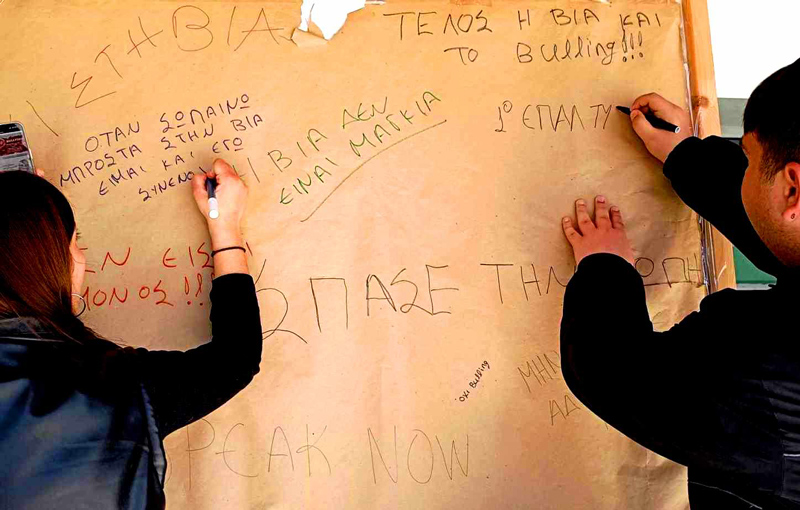 ΣΤΗ ΒΙΑ
ΤΕΛΟΣ Η ΒΙΑ ΚΑΙ
ΤΟ Bulling!!!
ΟΤΑΝ ΣΩΠΑΙΝΩ
ΜΠΡΟΣΤΑ ΣΤΗΝ ΒΙΑ
ΕΙΜΑΙ ΚΑΙ ΕΓΩ
ΣΥΝΕΝΟ
Η ΒΙΑ ΔΕΝ
ΕΙΝΑΙ ΜΑΓΚΙΑ
1º ΕΠΑΛ ΤΥ
ΕΝ ΕΙΣ
ΜΟΝΟΣ!!
ΣΠΑΣΕ ΤΗΝ ΩΠΗ
ΟΧΙ Bulling
ΜΗΝ
PEAK NOW